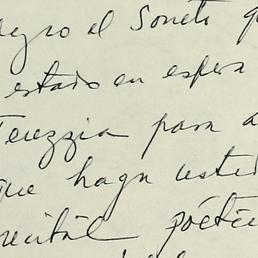 egro el Soneto q
estado en espera
Terezzia para a
que haga usted
recital poétic